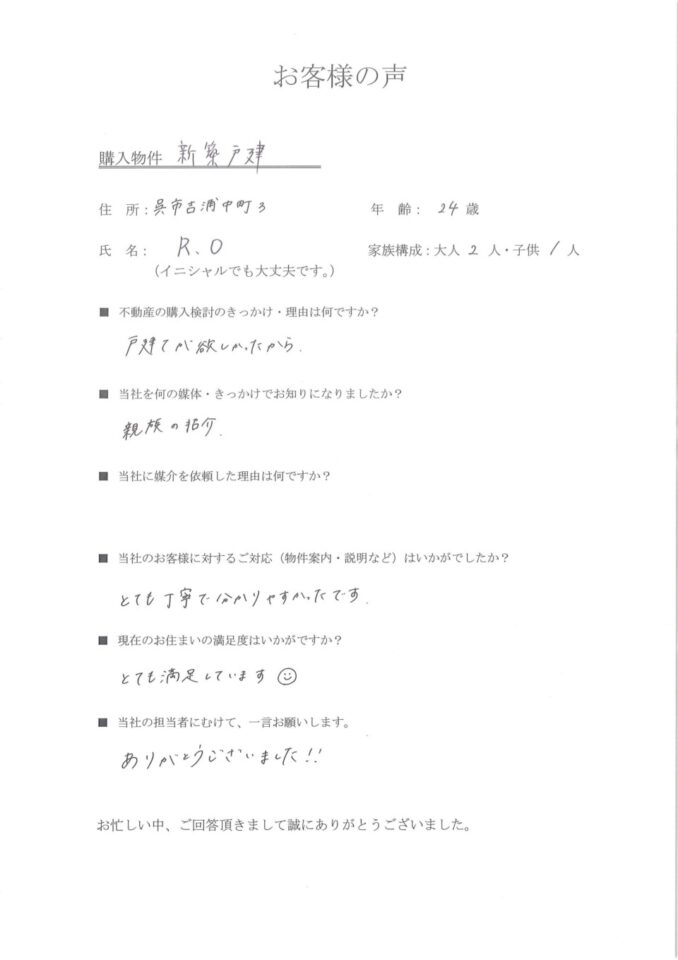 お客様の声
購入物件 新築戸建
住 所：呉市吉浦中町3 年 齢： 24 歳
氏 名： R、O 家族構成：大人 2 人・子供 1 人
（イニシャルでも大丈夫です。）
■ 不動産の購入検討のきっかけ・理由は何ですか？
戸建てが欲しかったから.
■ 当社を何の媒体・きっかけでお知りになりましたか？
親族の紹介.
■ 当社に媒介を依頼した理由は何ですか？
■ 当社のお客様に対するご対応（物件案内・説明など）はいかがでしたか？
とても丁寧で分かりやすかったです.
■ 現在のお住まいの満足度はいかがですか？
とても満足しています☺
■ 当社の担当者にむけて、一言お願いします。
ありがとうございました!!
お忙しい中、ご回答頂きまして誠にありがとうございました。